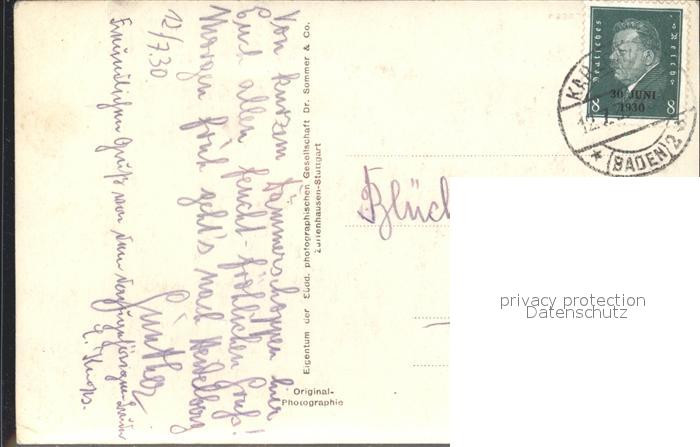 12/7.30
Von kurzem Dämmerschoppen hier
Euch allen feucht-fröhlichen Gruß!
Morgen früh geht's nach Heidelberg
Günther
Freundlichen Gruß von
E. Knops.
Eigentum der Südd. photographischen Gesellschaft Dr. Sommer & Co.
Zuffenhausen-Stuttgart
Original-
Photographie
Deutsches Reich
30. JUNI
1930
8 8
KA
12.7.
(BADEN) 2
Blüch
privacy protection
Datenschutz